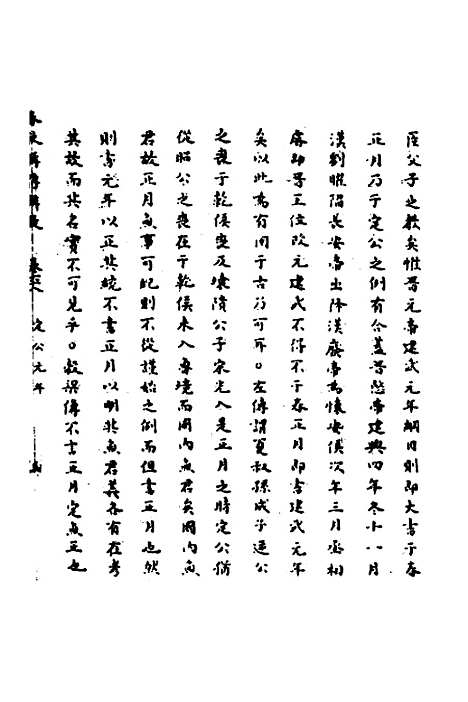 臣父子之教矣惟晉元帝建武元年綱目則即大書于春
正月乃于定公之例有合蓋晉愍帝建興四年冬十一月
漢劉曜陷長安帝出降漢廢帝為懷安侯次年三月丞相
睿即晉王位改元建武不得不于春正月即書建武元年
矣以此為有因于古乃可耳○左傳謂夏叔孫成子逆公
之喪于乾侯喪及壞隤公子宋先入是正月之時定公猶
從昭公之喪在于乾侯未入魯境而國內無君矣國內無
君故正月無事可紀則不從謹始之例而但書正月也然
則書元年以正其統不書正月以明其無君義各有在考
其故而其名實不可見乎○穀梁傳不言正月定無正也
定公元年